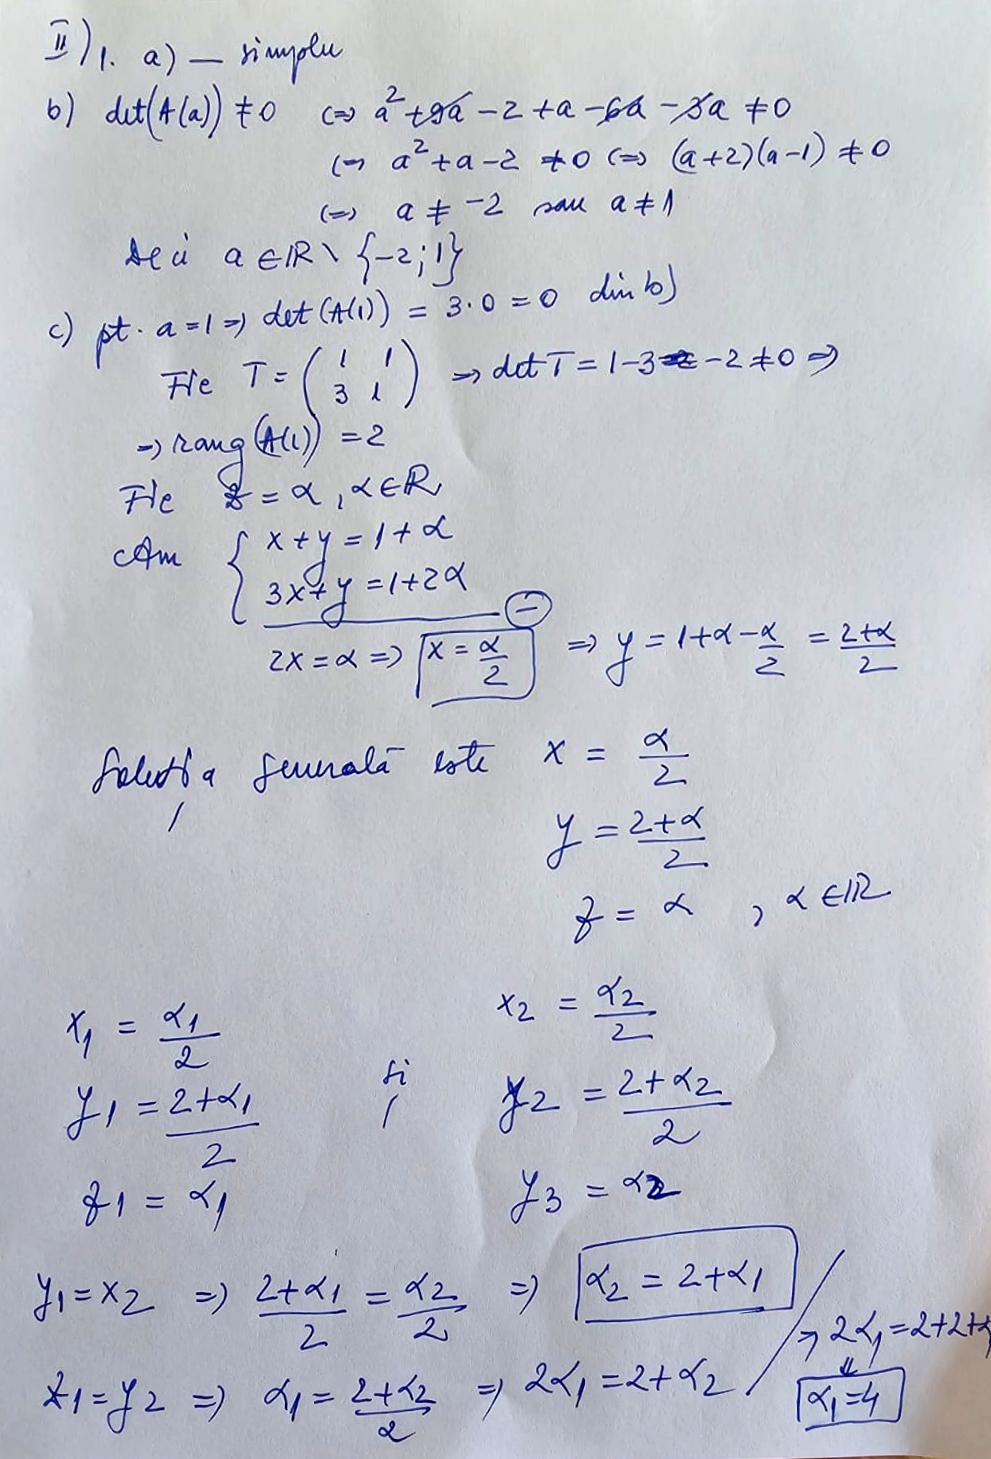 II) 1. a) — simplu
b) det(A(a)) ≠ 0 (=> a² + 9a - 2 + a - 6a - 3a ≠ 0
(=> a² + a - 2 ≠ 0 (=> (a+2)(a-1) ≠ 0
(=> a ≠ -2 sau a ≠ 1
Deci a ∈ ℝ \ {-2; 1}
c) pt. a = 1 => det(A(1)) = 3·0 = 0 din b)
Fie T = ( 1 1 ; 3 1 ) => det T = 1-3 -2 ≠ 0 =>
=> rang(A(1)) = 2
Fie z = α, α ∈ ℝ
Am { x + y = 1 + α
3x + y = 1 + 2α
(-)
2x = α => x = α/2 => y = 1 + α - α/2 = (2+α)/2
Soluția generală este x = α/2
y = (2+α)/2
z = α , α ∈ ℝ
x₁ = α₁/2 x₂ = α₂/2
y₁ = (2+α₁)/2 și y₂ = (2+α₂)/2
z₁ = α₁ y₃ = α₂
y₁ = x₂ => (2+α₁)/2 = α₂/2 => α₂ = 2 + α₁
z₁ = y₂ => α₁ = (2+α₂)/2 => 2α₁ = 2 + α₂
=> 2α₁ = 2+2+α₁
α₁ = 4